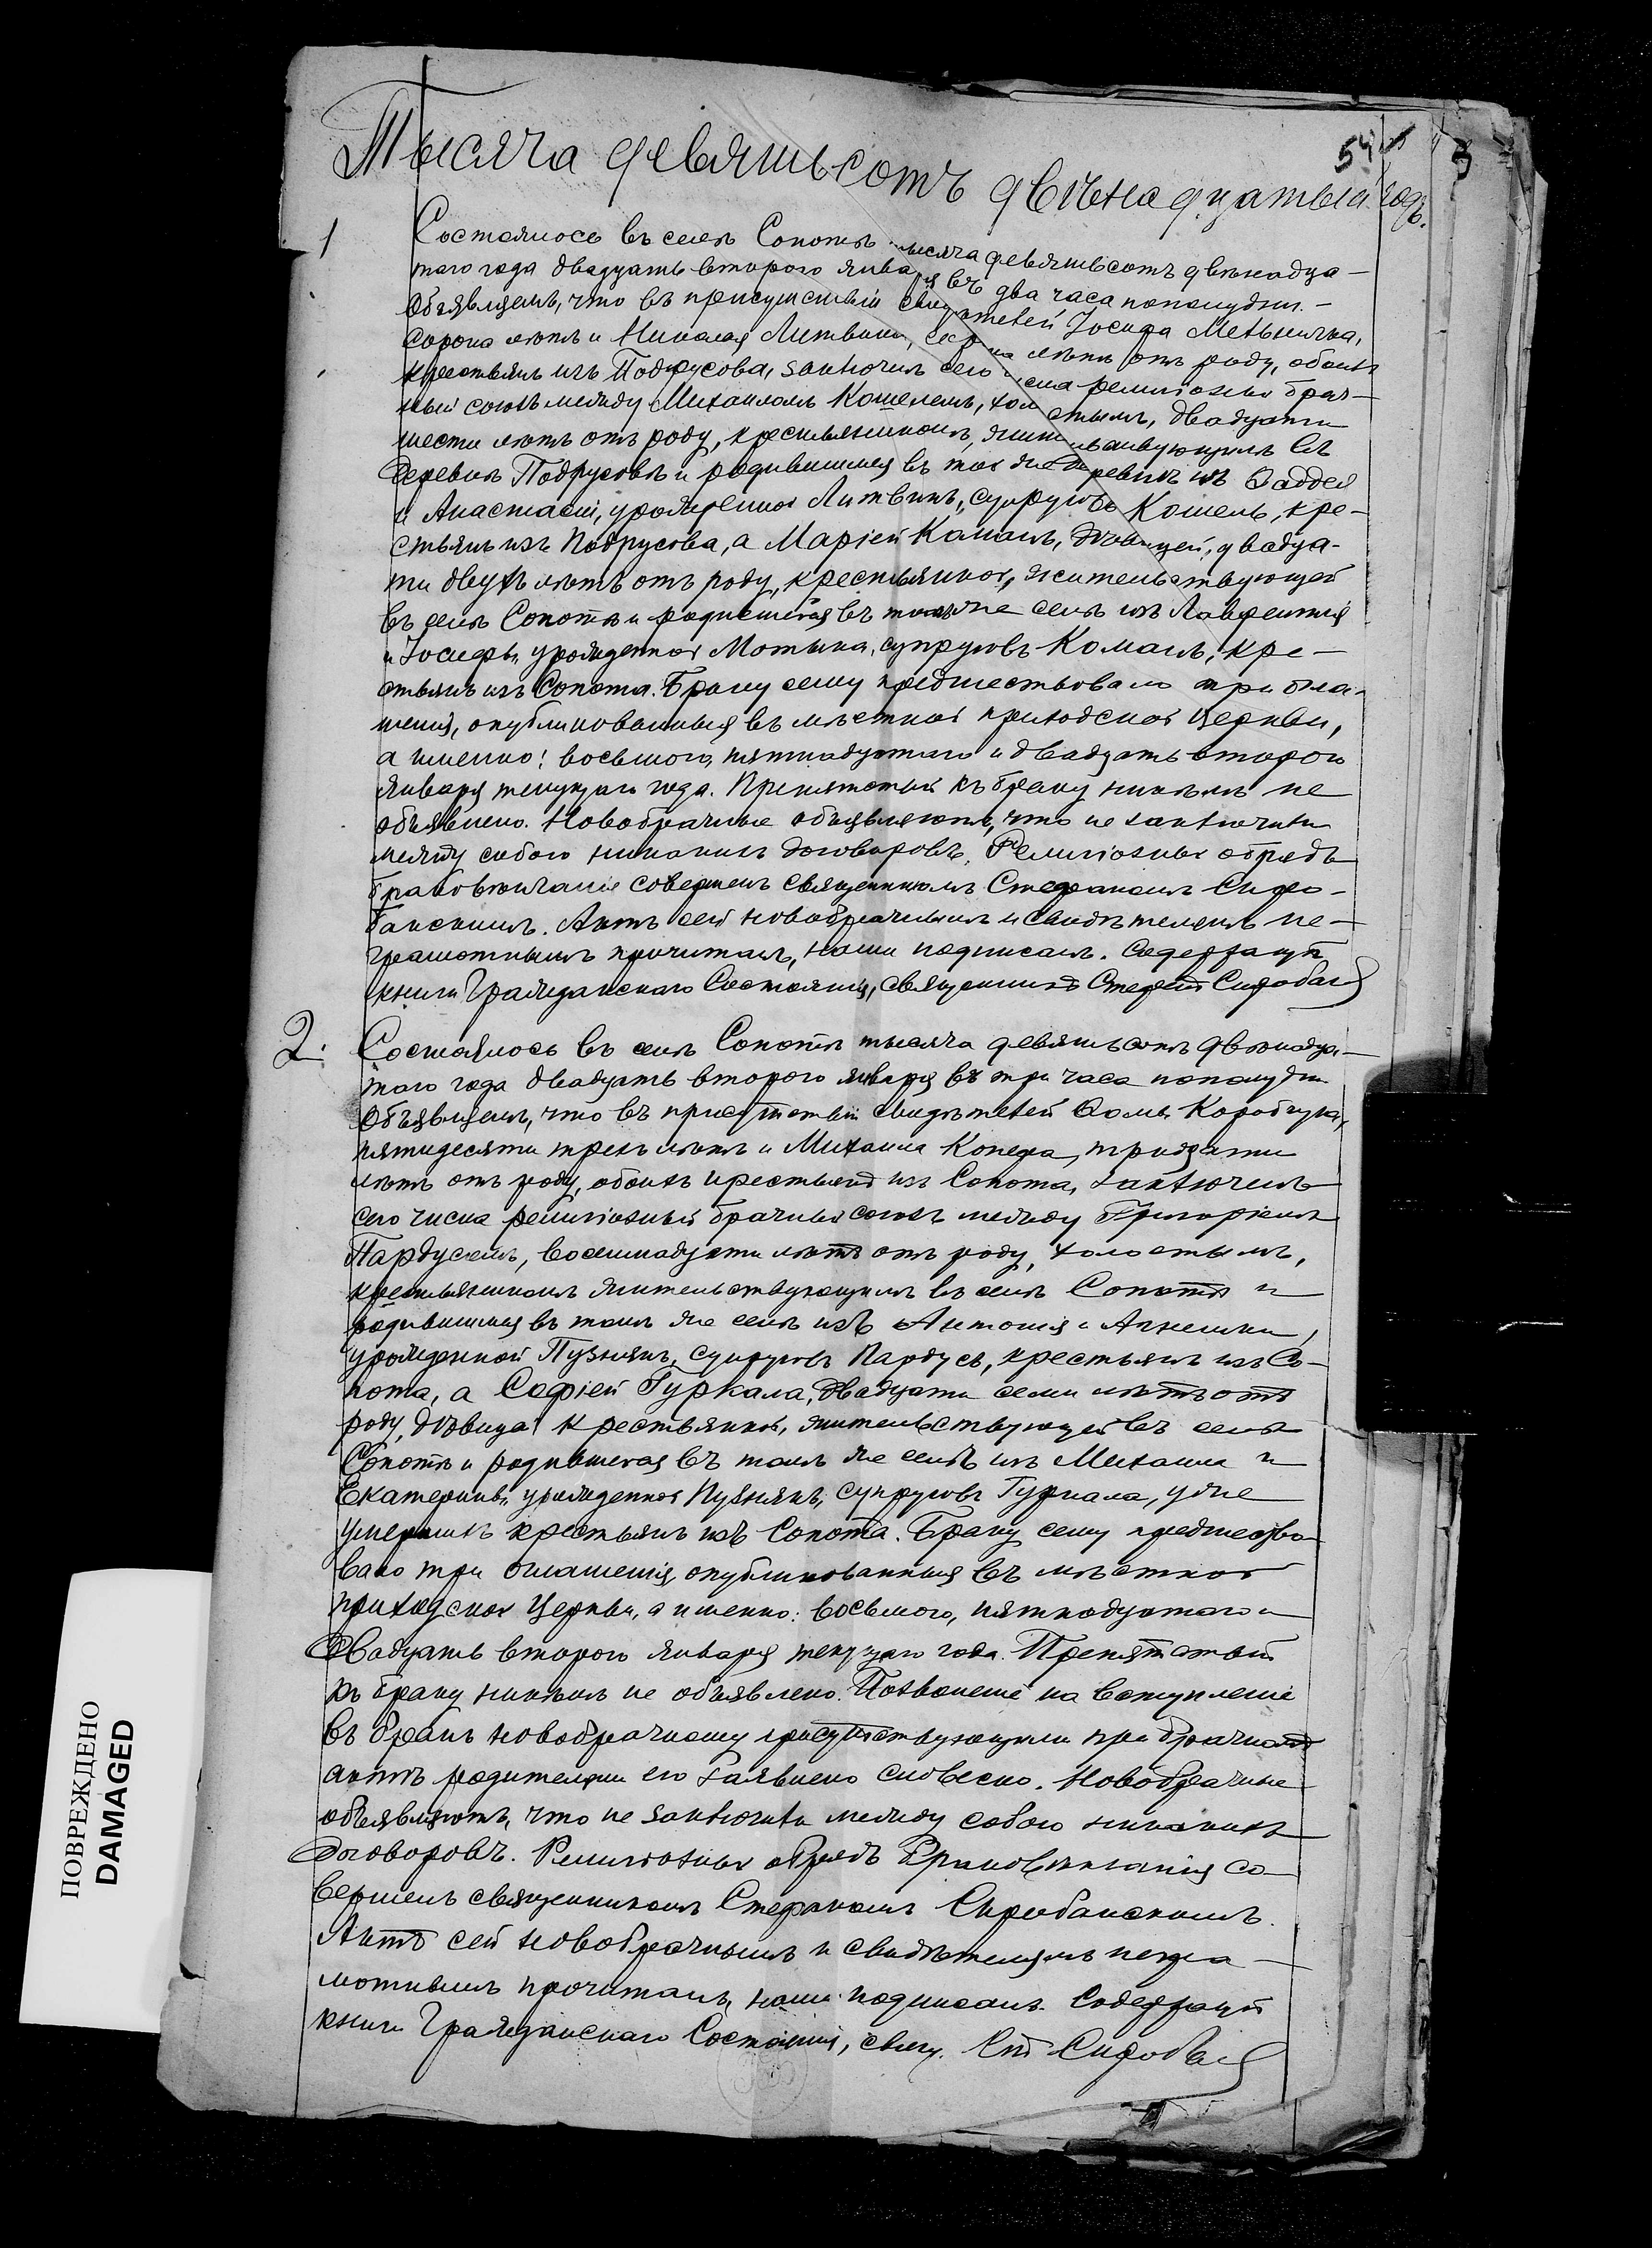 54
3
Тысяча девятьсотъ двѣнадцатый годъ.
1
Состоялось въ селѣ Сопотѣ тысяча девятьсотъ двѣнадца-
таго года двадцать второго января въ два часа пополудни.-
Объявляемъ, что въ присутствіи свидѣтелей Іосифа Мельничка,
сорока лѣтъ и Николая Литвина, сорока лѣтъ отъ роду, обоихъ
крестьянъ изъ Подрусова, заключенъ сего числа религіозный брач-
ный союзъ между Михаиломъ Кошелемъ, холостымъ, двадцати
шести лѣтъ отъ роду, крестьяниномъ, жительствующимъ въ
деревнѣ Подрусовѣ и родившимся въ той же деревнѣ изъ Ѳаддея
и Анастасіи, урожденной Литвинъ, супруговъ Кошель, кре-
стьянъ изъ Подрусова, а Маріей Команъ, дѣвицей, двадца-
ти двухъ лѣтъ отъ роду, крестьянкой, жительствующей
въ селѣ Сопотѣ и родившейся въ томъ же селѣ изъ Лаврентія
и Іосифы, урожденной Мотыка, супруговъ Команъ, кре-
стьянъ изъ Сопота. Браку сему предшествовало три огла-
шенія, опубликованныя въ мѣстной приходской церкви,
а именно: восьмого, пятнадцатаго и двадцать второго
января текущаго года. Препятствій къ браку никѣмъ не
объявлено. Новобрачные объявляютъ, что не заключили
между собою никакихъ договоровъ. Религіозный обрядъ
браковѣнчанія совершенъ священникомъ Стефаномъ Скро-
банскимъ. Актъ сей новобрачнымъ и свидѣтелямъ не-
грамотнымъ прочитанъ, нами подписанъ. Содержащій
книги Гражданскаго Состоянія, священникъ Стефанъ
2.
Состоялось въ селѣ Сопотѣ тысяча девятьсотъ двѣнадца-
таго года двадцать второго января въ три часа пополудни.
Объявляемъ, что въ присутствіи свидѣтелей Ѳомы Коробчука,
пятидесяти трехъ лѣтъ и Михаила Копера, тридцати
лѣтъ отъ роду, обоихъ крестьянъ изъ Сопота, заключенъ
сего числа религіозный брачный союзъ между Григоріемъ
Пардусемъ, восемнадцати лѣтъ отъ роду, холостымъ,
крестьяниномъ жительствующимъ въ селѣ Сопотѣ и
родившимся въ томъ же селѣ изъ Антонія и Агнешки,
урожденной Пузнякъ, супруговъ Пардусь, крестьянъ изъ Со-
пота, а Софіей Гуркала, двадцати семи лѣтъ отъ
роду, дѣвицей крестьянкой, жительствующей въ селѣ
Сопотѣ и родившейся въ томъ же селѣ изъ Михаила и
Екатерины, урожденной Пузнякъ, супруговъ Гуркала, уже
умершихъ крестьянъ изъ Сопота. Браку сему предшество-
вало три оглашенія, опубликованныя въ мѣстной
приходской церкви, а именно: восьмого, пятнадцатаго и
двадцать второго января текущаго года. Препятствій
къ браку никѣмъ не объявлено. Позволеніе на вступленіе
въ бракъ новобрачному присутствующими при брачномъ
актѣ родителями его заявлено словесно. Новобрачные
объявляютъ, что не заключили между собою никакихъ
договоровъ. Религіозный обрядъ браковѣнчанія со-
вершенъ священникомъ Стефаномъ Скробанскимъ.
Актъ сей новобрачнымъ и свидѣтелямъ негра-
мотнымъ прочитанъ, нами подписанъ. Содержащій
книги Гражданскаго Состоянія, свящ. Ст.
ПОВРЕЖДЕНО
DAMAGED